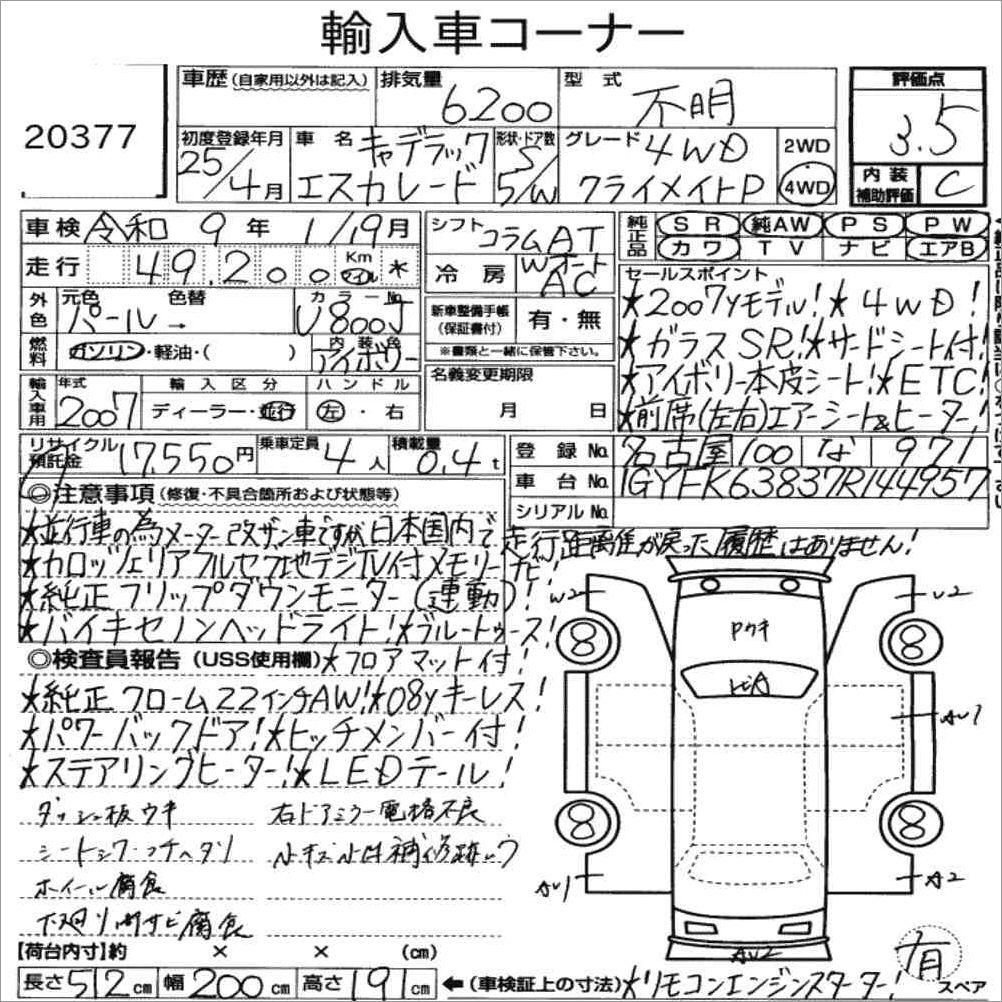 輸入車コーナー
20377
車歴 (自家用以外は記入) 排気量 6200 型式 不明
評価点 3.5
初度登録年月 25/4月 車名 キャデラック エスカレード
形状・ドア数 S 5/W グレード 4WD クライメイトP
2WD 4WD
内装補助評価 C
車検 令和 9年 1/19月
走行 49,200 Km マイル ※
外色 元色 パール → 色替 カラーNo. U800J
燃料 ガソリン・軽油・( ) 内装色 アイボリー
輸入車用 年式 2007 輸入区分 ディーラー・並行 ハンドル 左・右
シフト コラムAT
冷房 WオートAC
新車整備手帳 (保証書付) 有・無
※書類と一緒に保管下さい。
名義変更期限 月 日
純正品 SR 純AW PS PW
カワ TV ナビ エアB
セールスポイント
★2007yモデル!★4WD!
★ガラスSR!★サードシート付!
★アイボリー本皮シート!★ETC!
★前席(左右)エアーシート&ヒーター!
リサイクル預託金 17,550円 乗車定員 4人 積載量 0.4t
登録No. 名古屋 100 な 971
車台No. 1GYFK63837R144957
シリアルNo.
◎注意事項 (修復・不具合箇所および状態等)
★並行車の為メーター改ザン車ですが日本国内で走行距離が戻った履歴はありません!
★カロッツェリアフルセグ地デジTV付メモリーナビ!
★純正フリップダウンモニター(連動)!
★バイキセノンヘッドライト!★ブルートゥース!
◎検査員報告 (USS使用欄) ★フロアマット付!
★純正クローム22インチAW!★08yキーレス!
★パワーバックドア!★ヒッチメンバー付!
★ステアリングヒーター!★LEDテール!
ダッシュ板ウキ 右ドアミラー電格不良
シートシワ・コゲ・ヘタリ 小キズ小凹補修跡有り
ホイール腐食
下廻り サビ腐食
W2 U2
Pウキ
8 8
AU1
8 8
AU1 A2
AU2
【荷台内寸】約 × × (cm)
長さ 512cm 幅 200cm 高さ 191cm ←(車検証上の寸法)
★リモコンエンジンスターター!
有 スペア